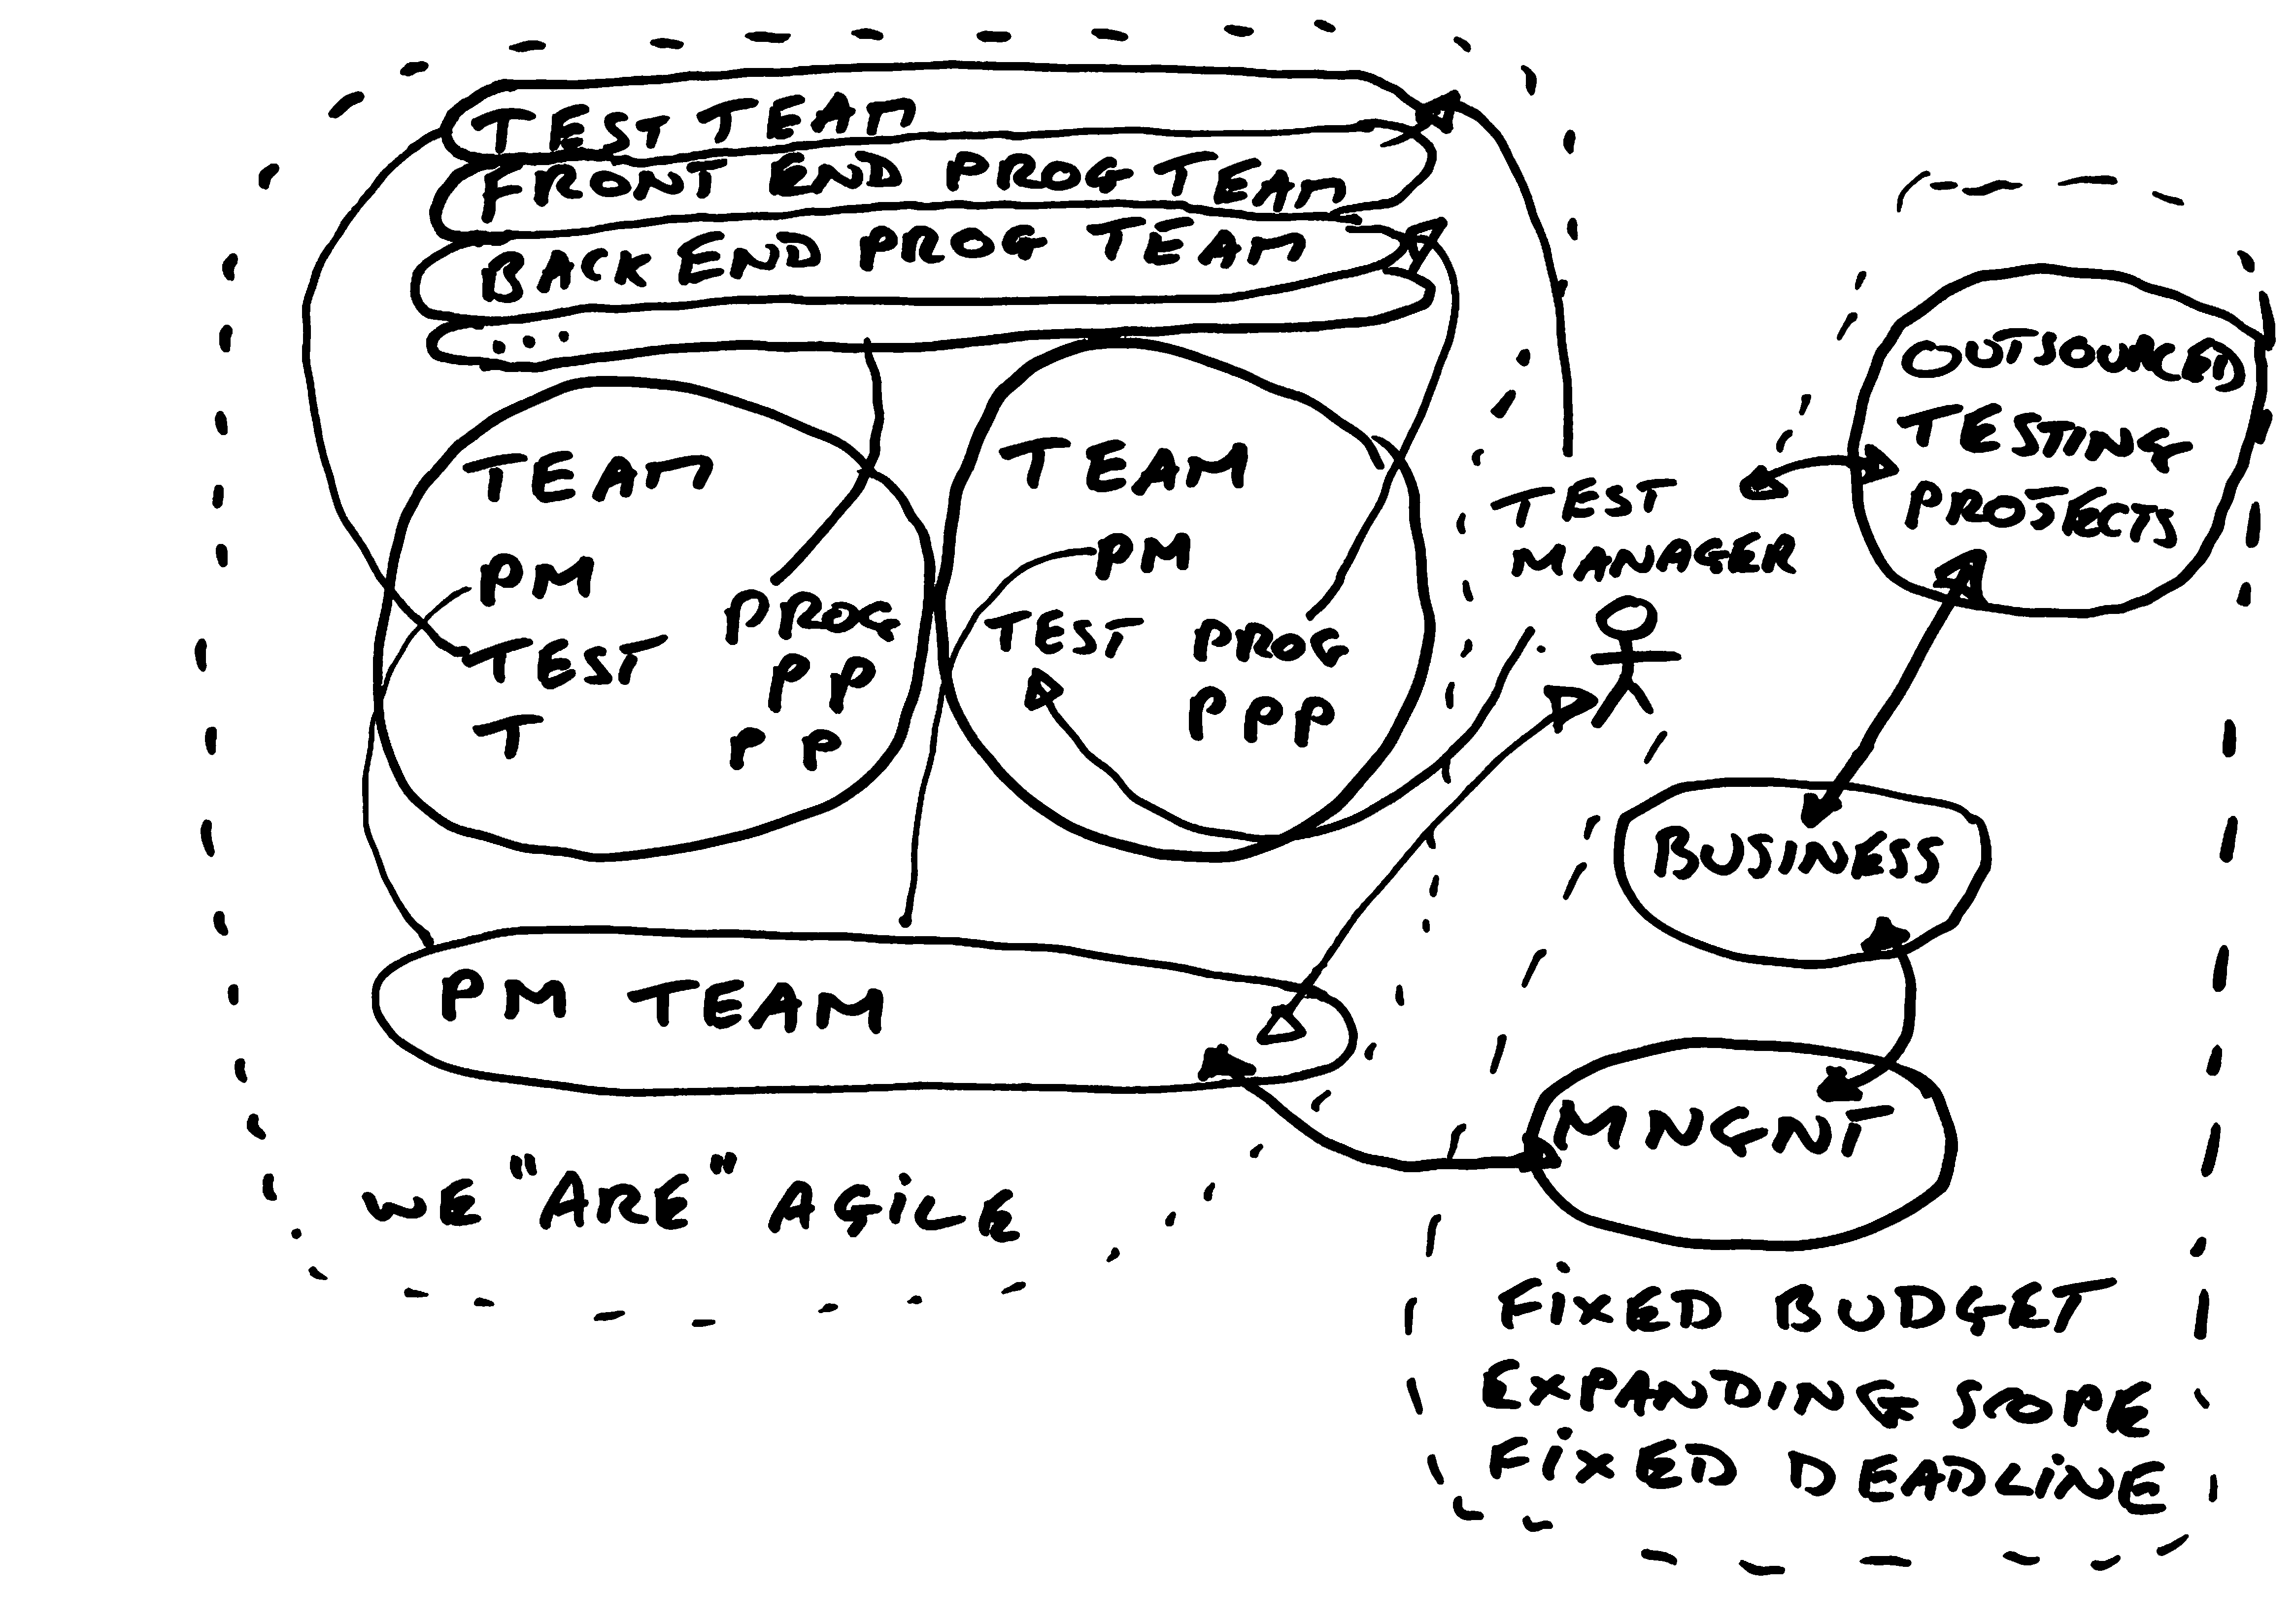 TEST TEAM
FRONT END PROG TEAM
BACK END PROG TEAM
...
TEAM
PM
TEST PROG
T PP
PP
TEAM
PM
TEST PROG
PPP
PM TEAM
WE "ARE" AGILE
TEST
MANAGER
OUTSOURCED
TESTING
PROJECTS
BUSINESS
MNGNT
FIXED BUDGET
EXPANDING SCOPE
FIXED DEADLINE